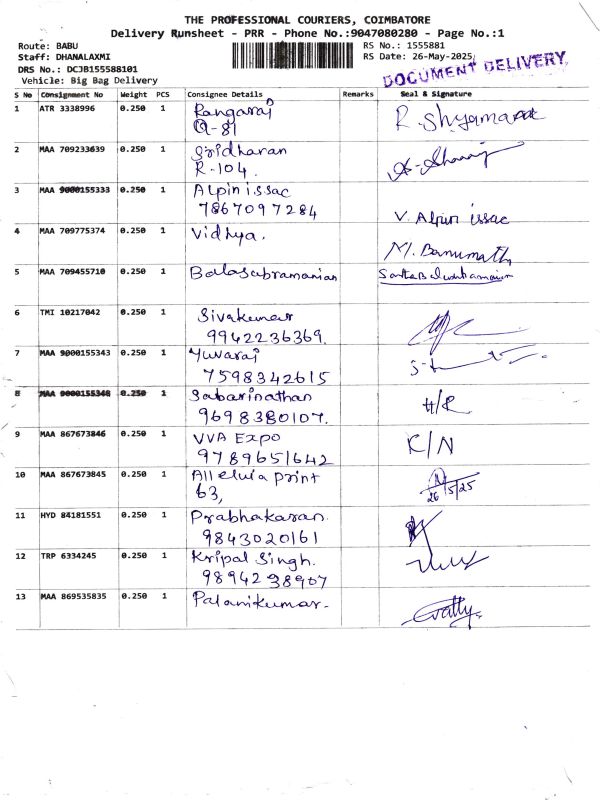 THE PROFESSIONAL COURIERS, COIMBATORE
Delivery Runsheet - PRR - Phone No.:9047080280 - Page No.:1
Route: BABU
RS No.: 1555881
Staff: DHANALAXMI
RS Date: 26-May-2025
DRS No.: DCJB155588101
Vehicle: Big Bag Delivery
DOCUMENT DELIVERY
S No Consignment No Weight PCS Consignee Details Remarks Seal & Signature
1 ATR 3338996 0.250 1 Rangaraj
Q-81
R. Shyamaraj
2 MAA 709233639 0.250 1 Sridharan
R-104.
3 MAA 9000155333 0.250 1 Alpin issac
7867097284
V. Alpin issac
4 MAA 709775374 0.250 1 Vidhya.
M. Banumathi
5 MAA 709455710 0.250 1 Balasubramanian
6 TMI 10217042 0.250 1 Sivakumar
9942236369.
7 MAA 9000155343 0.250 1 Yuvaraj
7598342615
8 MAA 9000155348 0.250 1 Sabarinathan
9698380107.
H/R
9 MAA 867673846 0.250 1 VVA Expo
9789651642
K/N
10 MAA 867673845 0.250 1 Alleluia print
63,
26/5/25
11 HYD 84181551 0.250 1 Prabhakaran.
9843020161
12 TRP 6334245 0.250 1 Kripal Singh.
9894238907
13 MAA 869535835 0.250 1 Palanikumar.